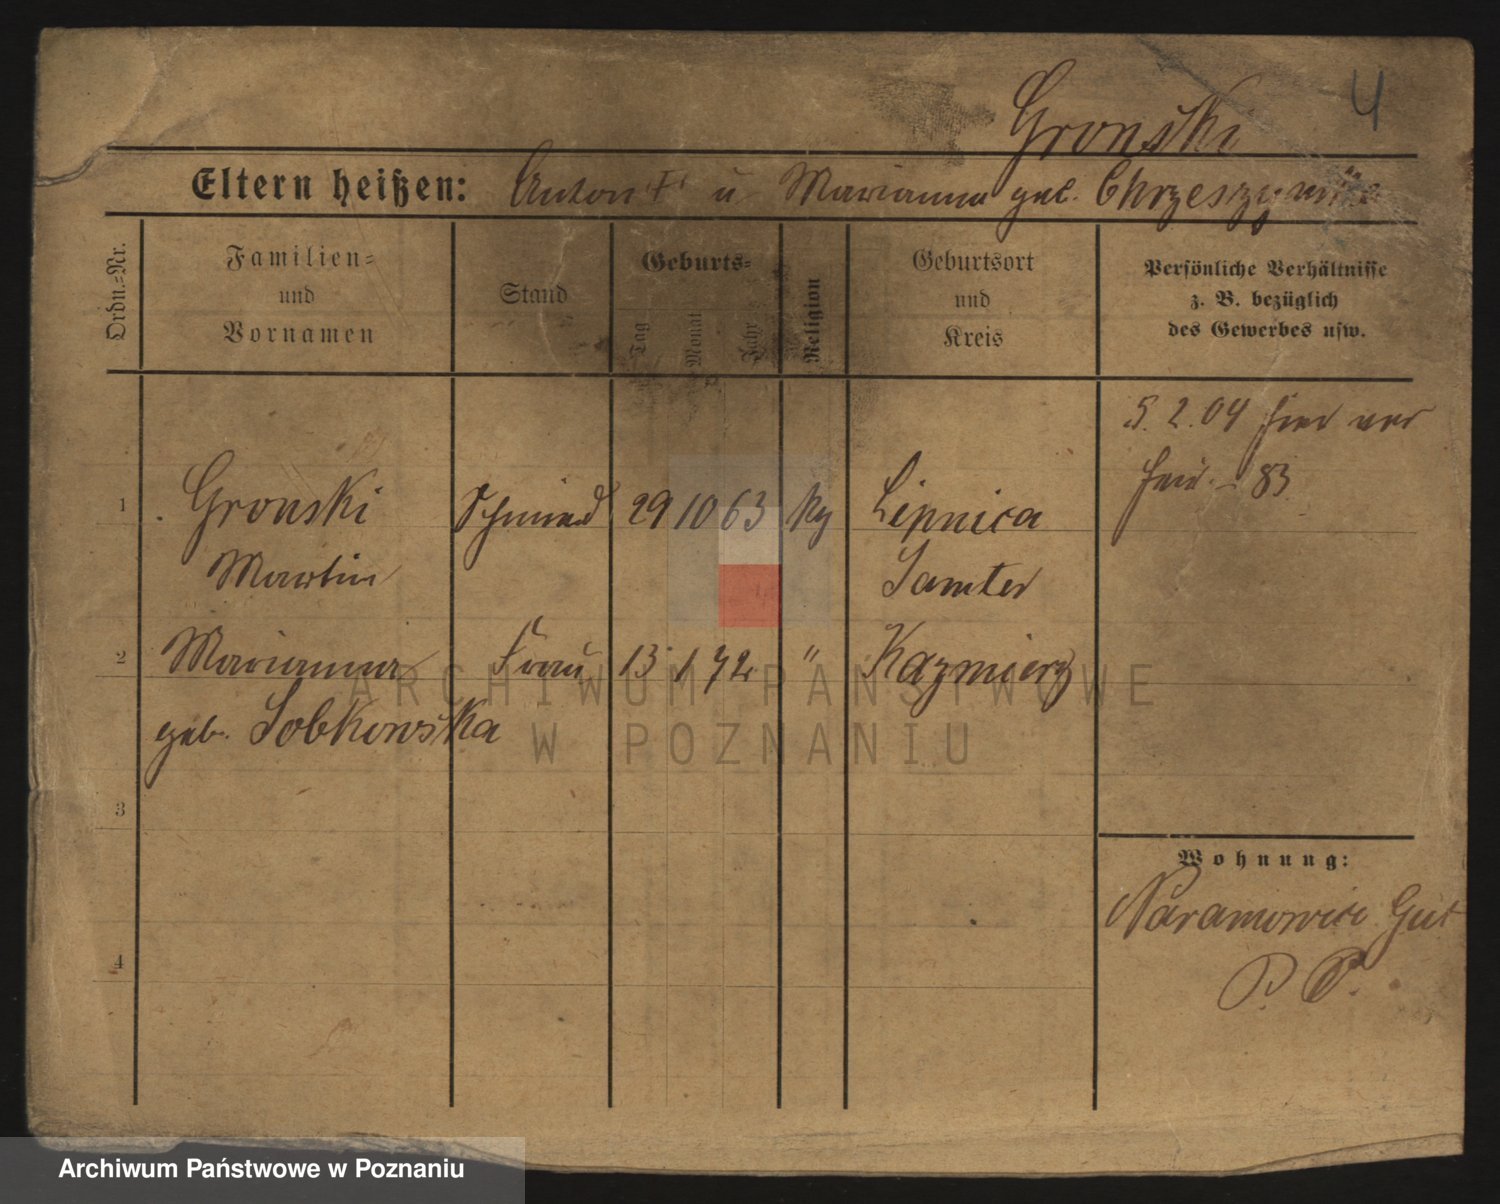 4
Gronski
Eltern heißen: Anton † u Marianna geb.
Ordn.-Nr.
Familien-
und
Vornamen
Stand
Geburts-
Tag
Monat
Jahr
Religion
Geburtsort
und
Kreis
Persönliche Verhältnisse
z. B. bezüglich
des Gewerbes usw.
5. 2. 04
83
1 Gronski Schmied 29 10 63 kg Lipnica
Martin Samter
2 Marianna Frau 13 1 72 " Kazmierz
geb. Sobkowska
3
4
Wohnung:
Naramowice Gut
ARCHIWUM PAŃSTWOWE
W POZNANIU
Archiwum Państwowe w Poznaniu